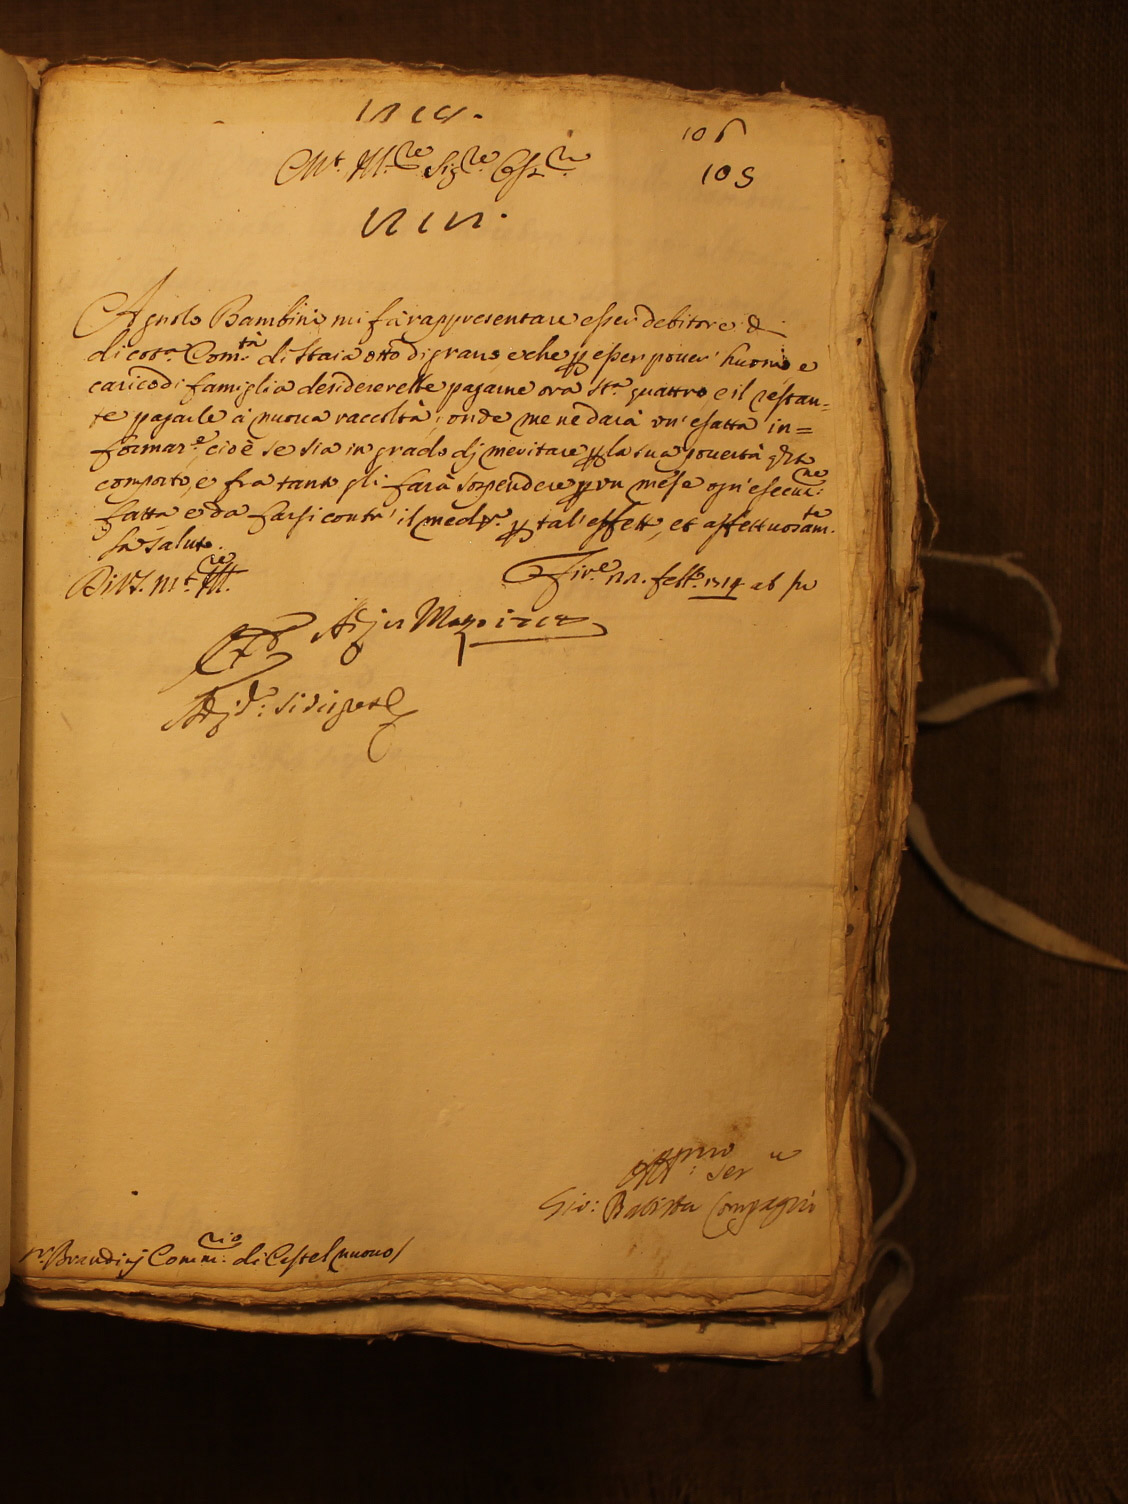 106
105
Mt. Ill.re Sig.re Oss.
Agnolo Bambini mi fà rappresentare esser debitore d
di cot.a Com.tà di staia otto di grano, e che p esser pover' huomo e
carico di famiglia desidererebbe pagarne ora st.a quattro e il restan=
te pagarle à nuova raccolta; onde me ne darà un' esatta in=
formaz.e, cioè se sia in grado dj meritare p la sua povertà q.to
comporto, e fra tanto gli farà sospendere p un mese ogn' esecuz.ne
fatta e da farsi contr' il med.mo p tal' effett, et affettuosam.te
la saluto.
Di V.S. m.to Ill.re
Fire. 22. febb.o 1714 ab
Adj 21 Marzo
Aff.mo Ser.re
Gio: Batista Compagni
Brandinj Comm.rio di Castel nuovo